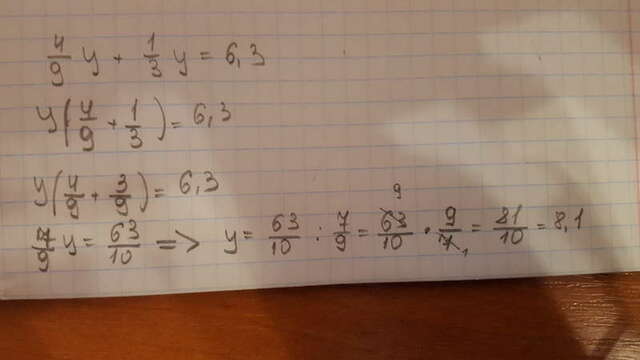 4/9 y + 1/3 y = 6,3
y(4/9 + 1/3) = 6,3
y(4/9 + 3/9) = 6,3
7/9 y = 63/10 => y = 63/10 : 7/9 = 63 9/10 · 9/7 1 = 81/10 = 8,1